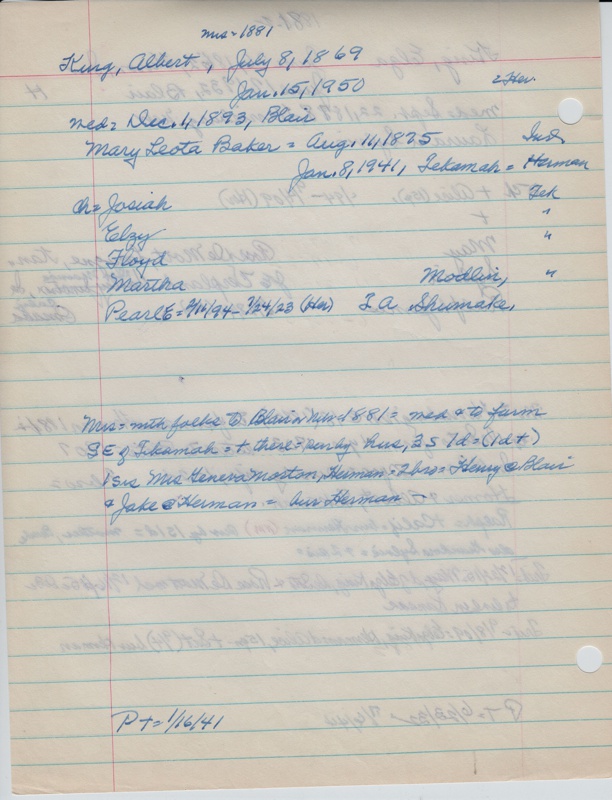 mvs = 1881
King, Albert, July 8, 1869
Jan. 15, 1950
2 Her.
med = Dec. 1, 1893, Blair
Mary Leota Baker = Aug. 11, 1875 Ind
Jan. 8, 1941, Tekamah = Herman
ch = Josiah Tek
Elzy "
Floyd "
Martha Modlin, "
PearlE = 9/16/94 - 7/24/23 (Her) T. A. Shumake,
Mvs = with folks to Blair in 1881 = med & to farm
SE of Tekamah = + there = survby hus, 3 S 1 d = (1 d +)
1 Sis Mrs Geneva Morton, Herman = 2 bro = Henry @ Blair
& Jake @ Herman = bur Herman -
P + = 1/16/41